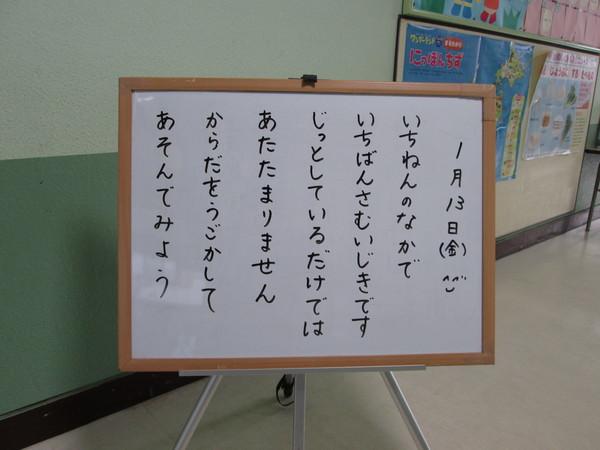 1月13日(金)
いちねんのなかで
いちばんさむいじきです
じっとしているだけでは
あたたまりません
からだをうごかして
あそんでみよう
にっぽんちず